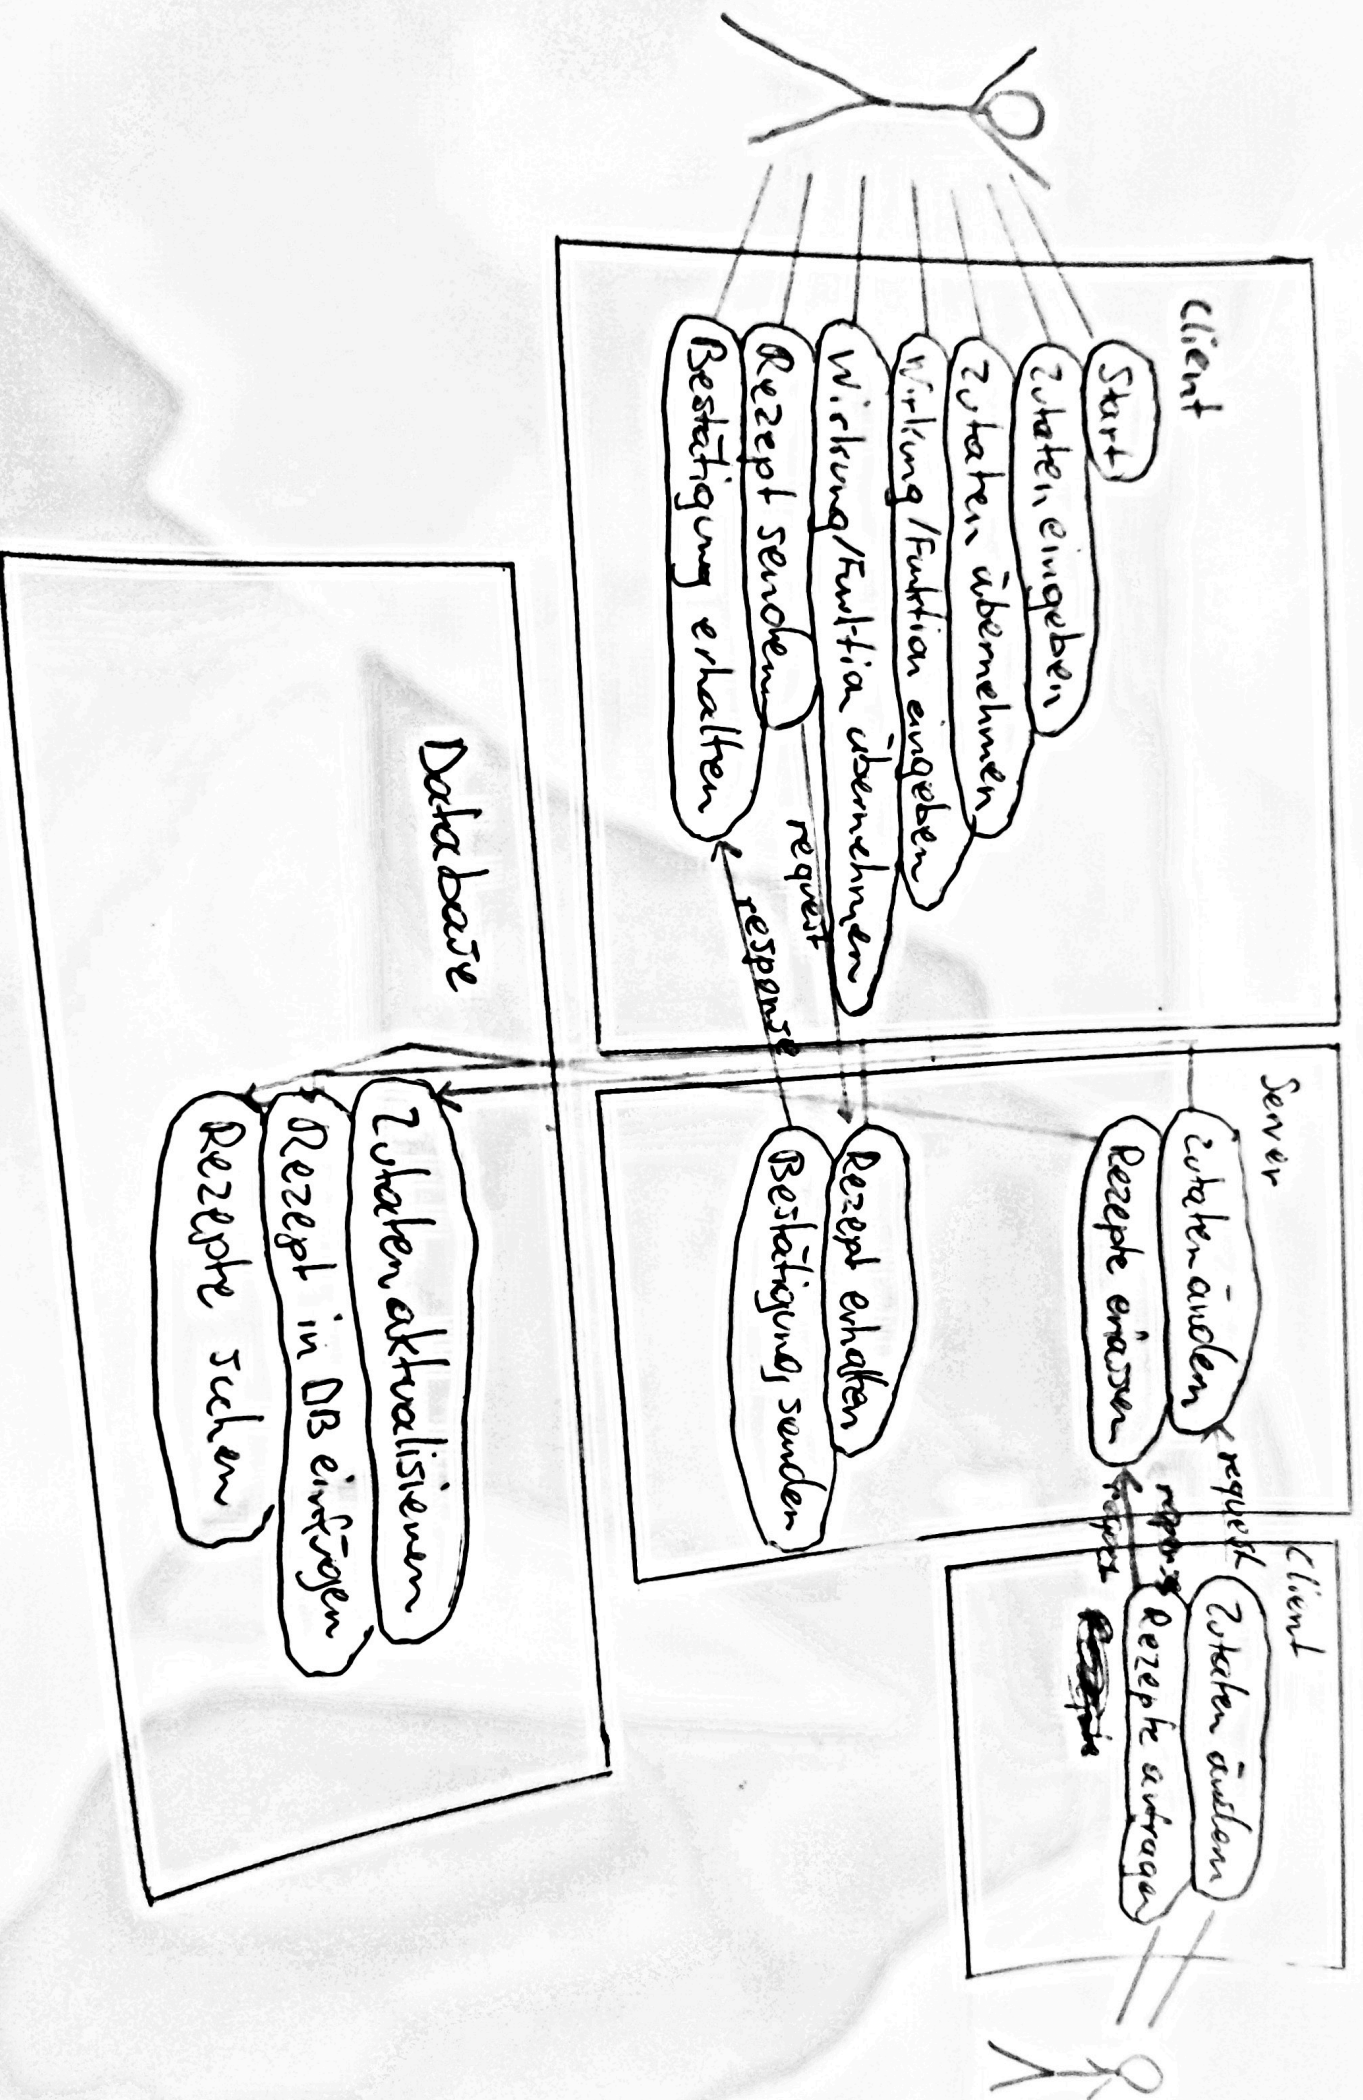 Client
Start
Zutaten eingeben
Zutaten übernehmen
Wirkung/Funktion eingeben
Wirkung/Funktion übernehmen
Rezept senden
Bestätigung erhalten
request
response
Server
Zutaten ändern
Rezepte
Rezept erhalten
Bestätigung senden
request
Client
Zutaten ändern
Rezepte anfragen
Database
Zutaten aktualisieren
Rezept in DB einfügen
Rezepte suchen